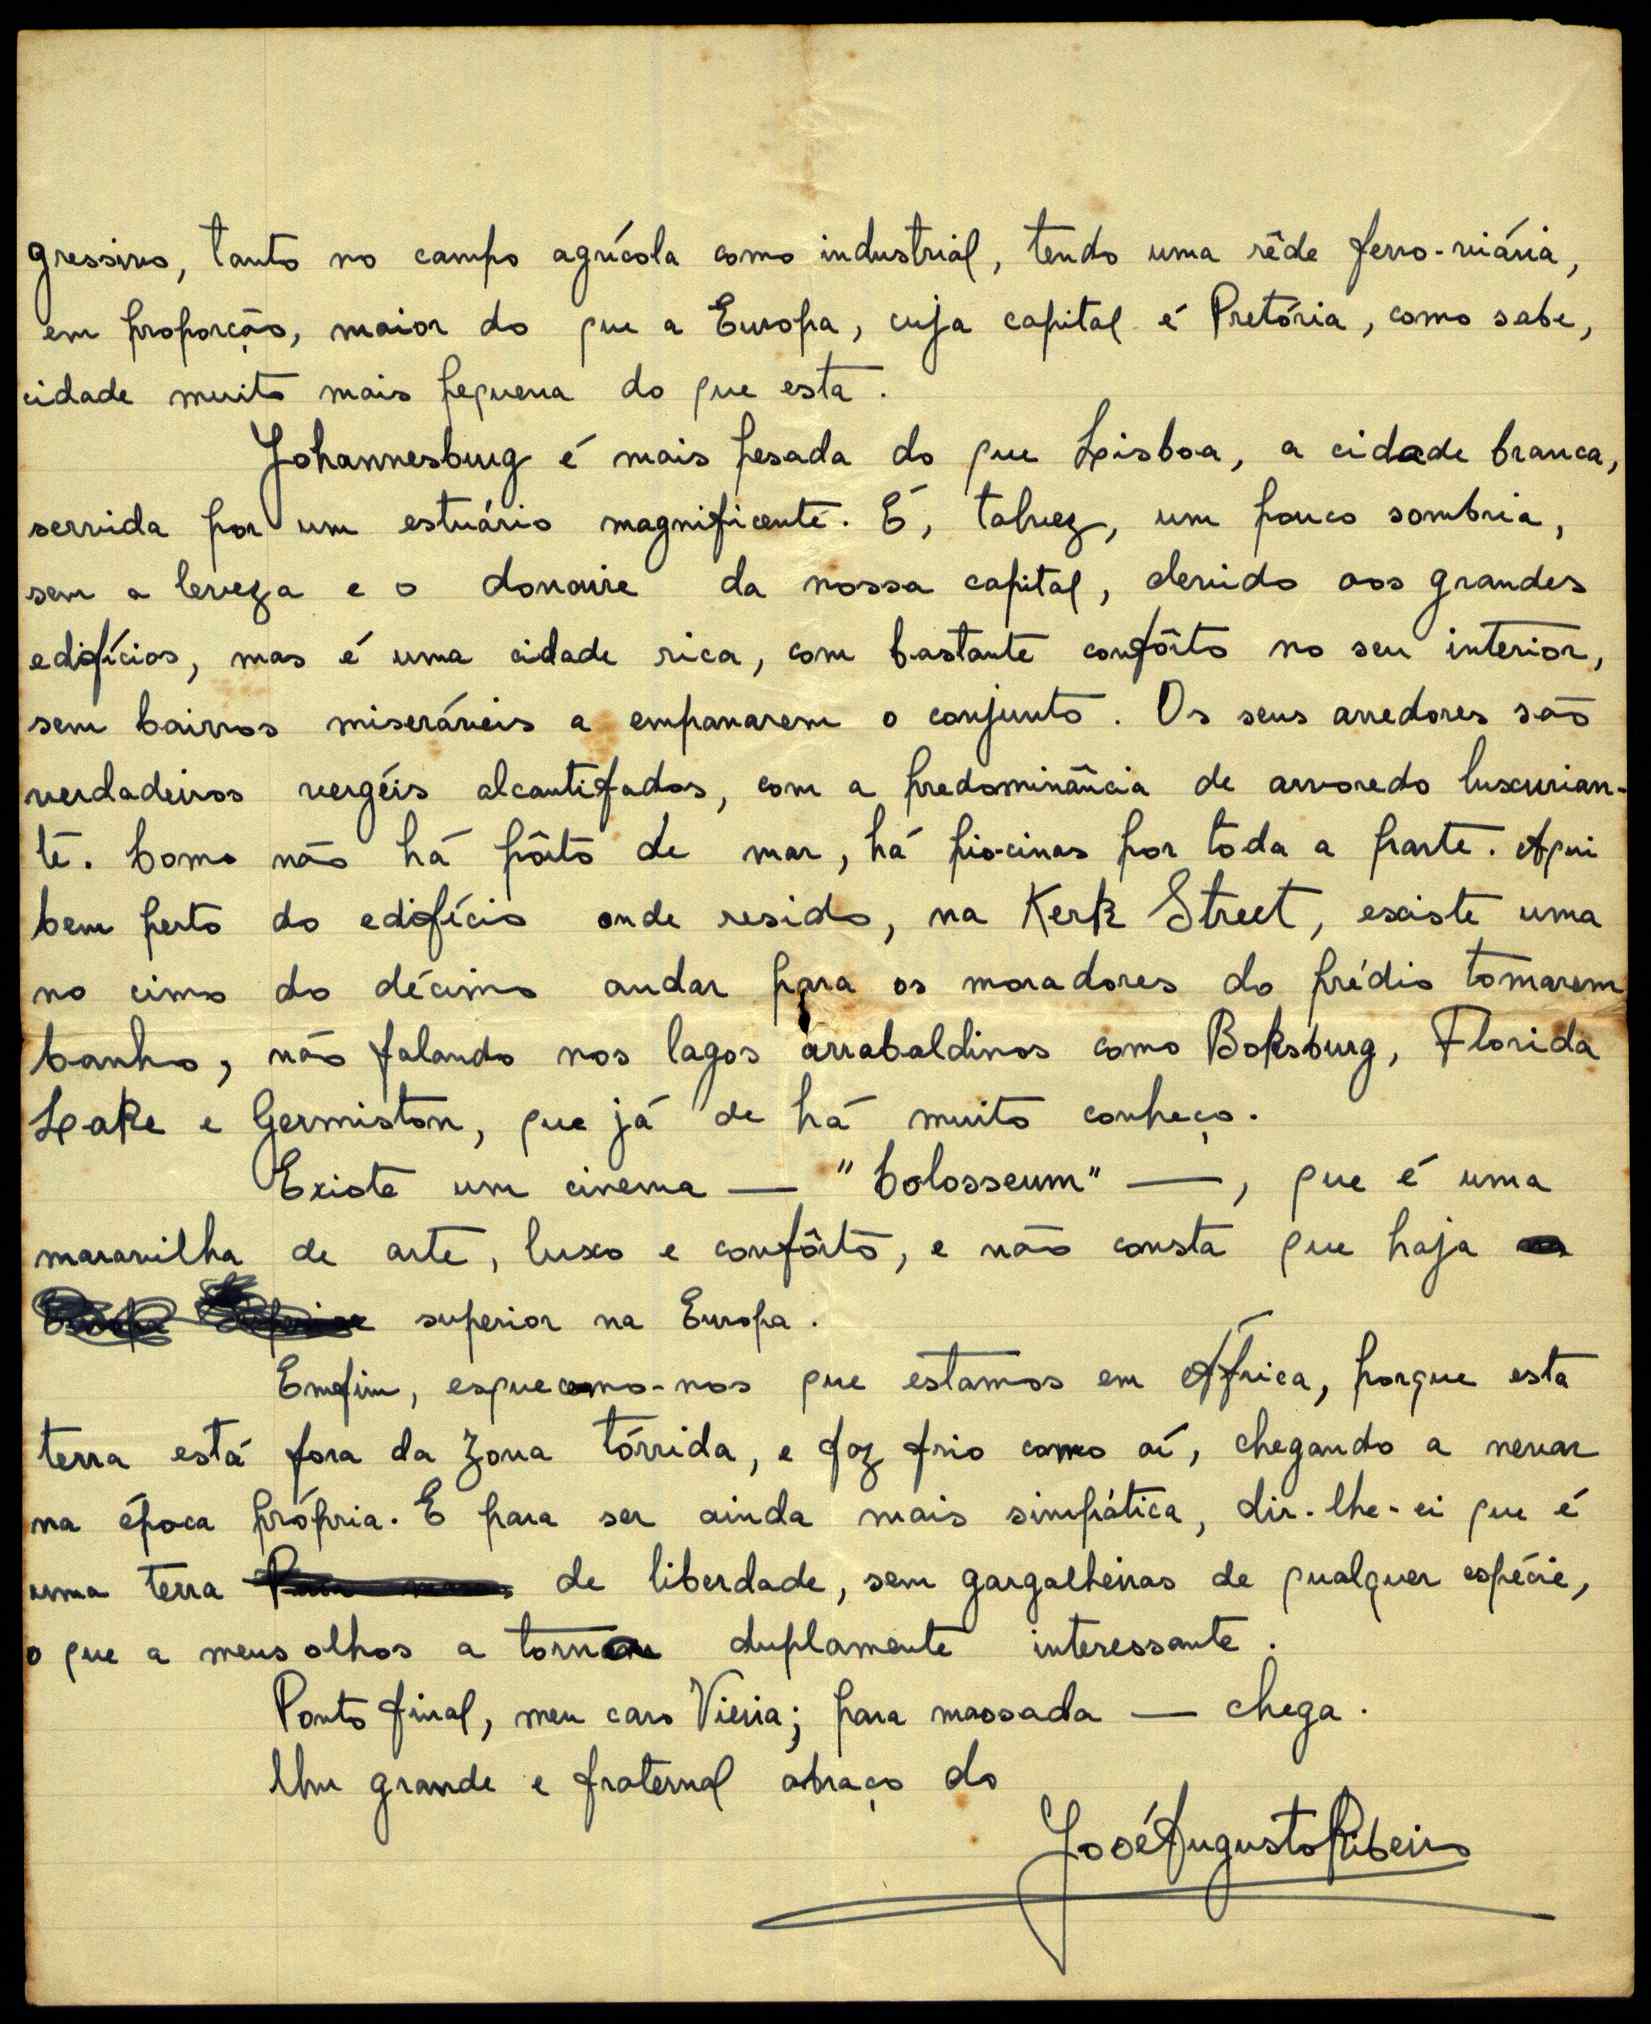 gressivo, tanto no campo agrícola como industrial, tendo uma rêde ferro-viária,
em proporção, maior do que a Europa, cuja capital é Pretória, como sabe,
cidade muito mais pequena do que esta.
Johannesburg é mais pesada do que Lisboa, a cidade branca,
servida por um estuário magnificente. É, talvez, um pouco sombria,
sem a leveza e o donaire da nossa capital, devido aos grandes
edifícios, mas é uma cidade rica, com bastante confôrto no seu interior,
sem bairros miseráveis a empanarem o conjunto. Os seus arredores são
verdadeiros vergéis alcatifados, com a predominância de arvoredo luxurian-
te. Como não há pôrto de mar, há piscinas por toda a parte. Aqui
bem perto do edifício onde resido, na Kerk Street, existe uma
no cimo do décimo andar para os moradores do prédio tomarem
banho, não falando nos lagos arrabaldinos como Boksburg, Florida
Lake e Germiston, que já de há muito conheço.
Existe um cinema — "Colosseum" —, que é uma
maravilha de arte, luxo e confôrto, e não consta que haja
superior na Europa.
Emfim, esquecamo-nos que estamos em África, porque esta
terra está fora da zona tórrida, e faz frio como aí, chegando a nevar
na época própria. E para ser ainda mais simpática, dir-lhe-ei que é
uma terra de liberdade, sem gargalheiras de qualquer espécie,
o que a meus olhos a torna duplamente interessante.
Ponto final, meu caro Vieira; para massada — chega.
Um grande e fraternal abraço do
José Augusto Ribeiro